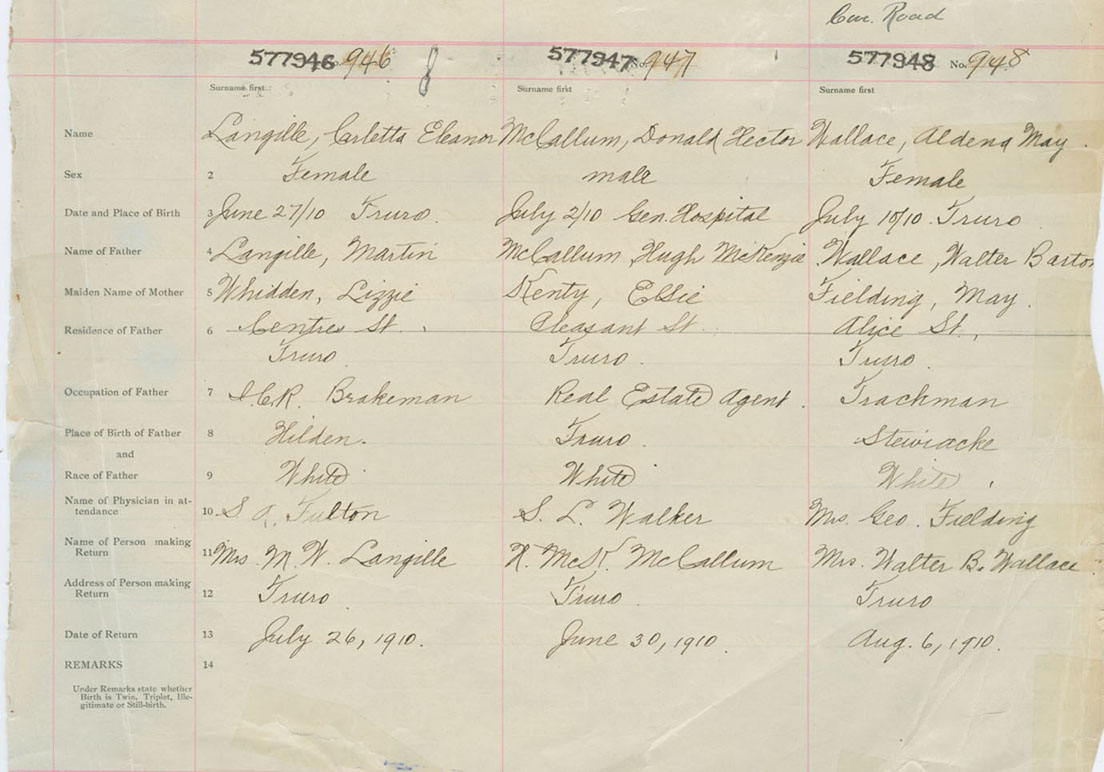 Con. Road
577946 No. 946 577947 No. 947 577948 No. 948
Surname first. Surname first Surname first
Name 1 Langille, Carletta Eleanor McCallum, Donald Hector Wallace, Aldena May
Sex 2 Female male Female
Date and Place of Birth 3 June 27/10 Truro. July 2/10 Gen. Hospital July 10/10 Truro
Name of Father 4 Langille, Martin McCallum, Hugh McKenzie Wallace, Walter Barton
Maiden Name of Mother 5 Whidden, Lizzie Kenty, Elsie Fielding, May.
Residence of Father 6 Centre St. Pleasant St. Alice St.,
Truro Truro. Truro.
Occupation of Father 7 I.C.R. Brakeman Real Estate Agent. Trachman
Place of Birth of Father 8 Hilden. Truro. Stewiacke
and
Race of Father 9 White White White
Name of Physician in at-
tendance 10 S. A. Fulton S. L. Walker Mrs. Geo. Fielding
Name of Person making
Return 11 Mrs. M. W. Langille H. McK. McCallum Mrs. Walter B. Wallace
Address of Person making
Return 12 Truro Truro. Truro
Date of Return 13 July 26, 1910. June 30, 1910. Aug. 6, 1910.
REMARKS 14
Under Remarks state whether
Birth is Twin, Triplet, Ille-
gitimate or Still-birth.